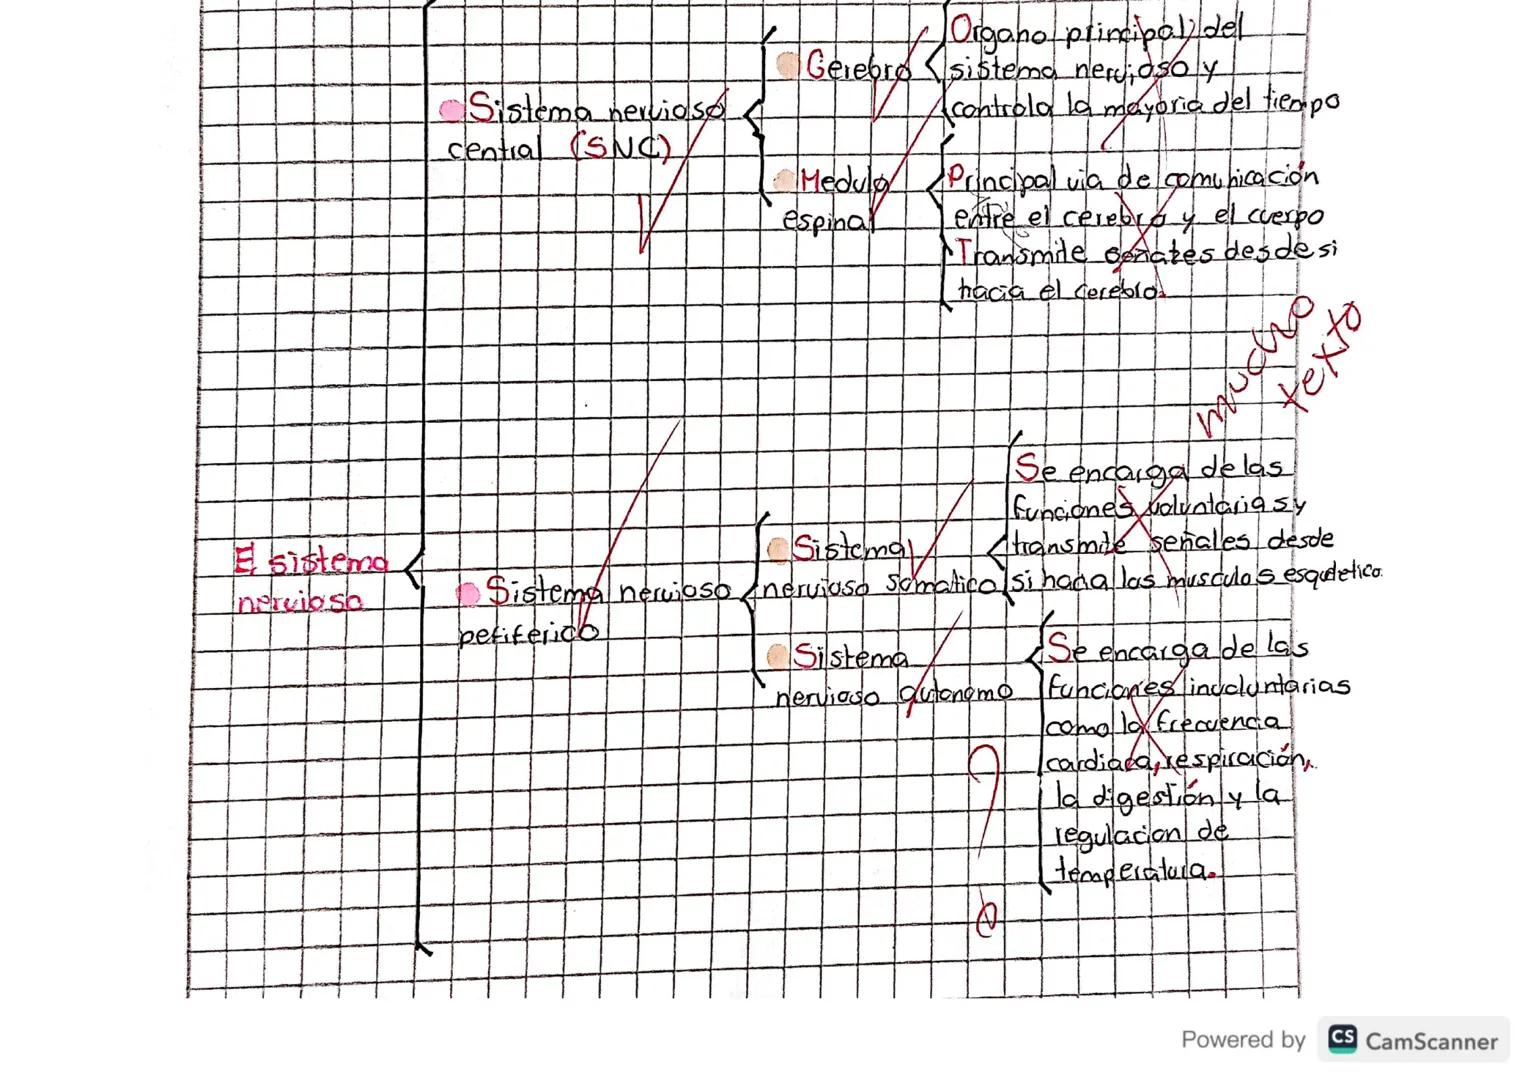 Organo principal del
sistema nervioso y
controla la mayoria del tiempo
Cerebro
Sistema nervioso
central (SNC)
Medula
espinal
Principal via de comunicación
entre el cerebro y el cuerpo
Transmite señales desde si
hacia el cerebro.
mucho
texto
Se encarga de las
funciones voluntarias y
transmite señales desde
si hacia los musculos esqueletico.
Sistema
nervioso somatico
El sistema
nervioso
Sistema nervioso
periferico
Sistema
nervioso autonomo
Se encarga de las
funciones involuntarias
como la frecuencia
cardiaca, respiración,
la digestión y la
regulacion de
temperatura.
Powered by CS CamScanner